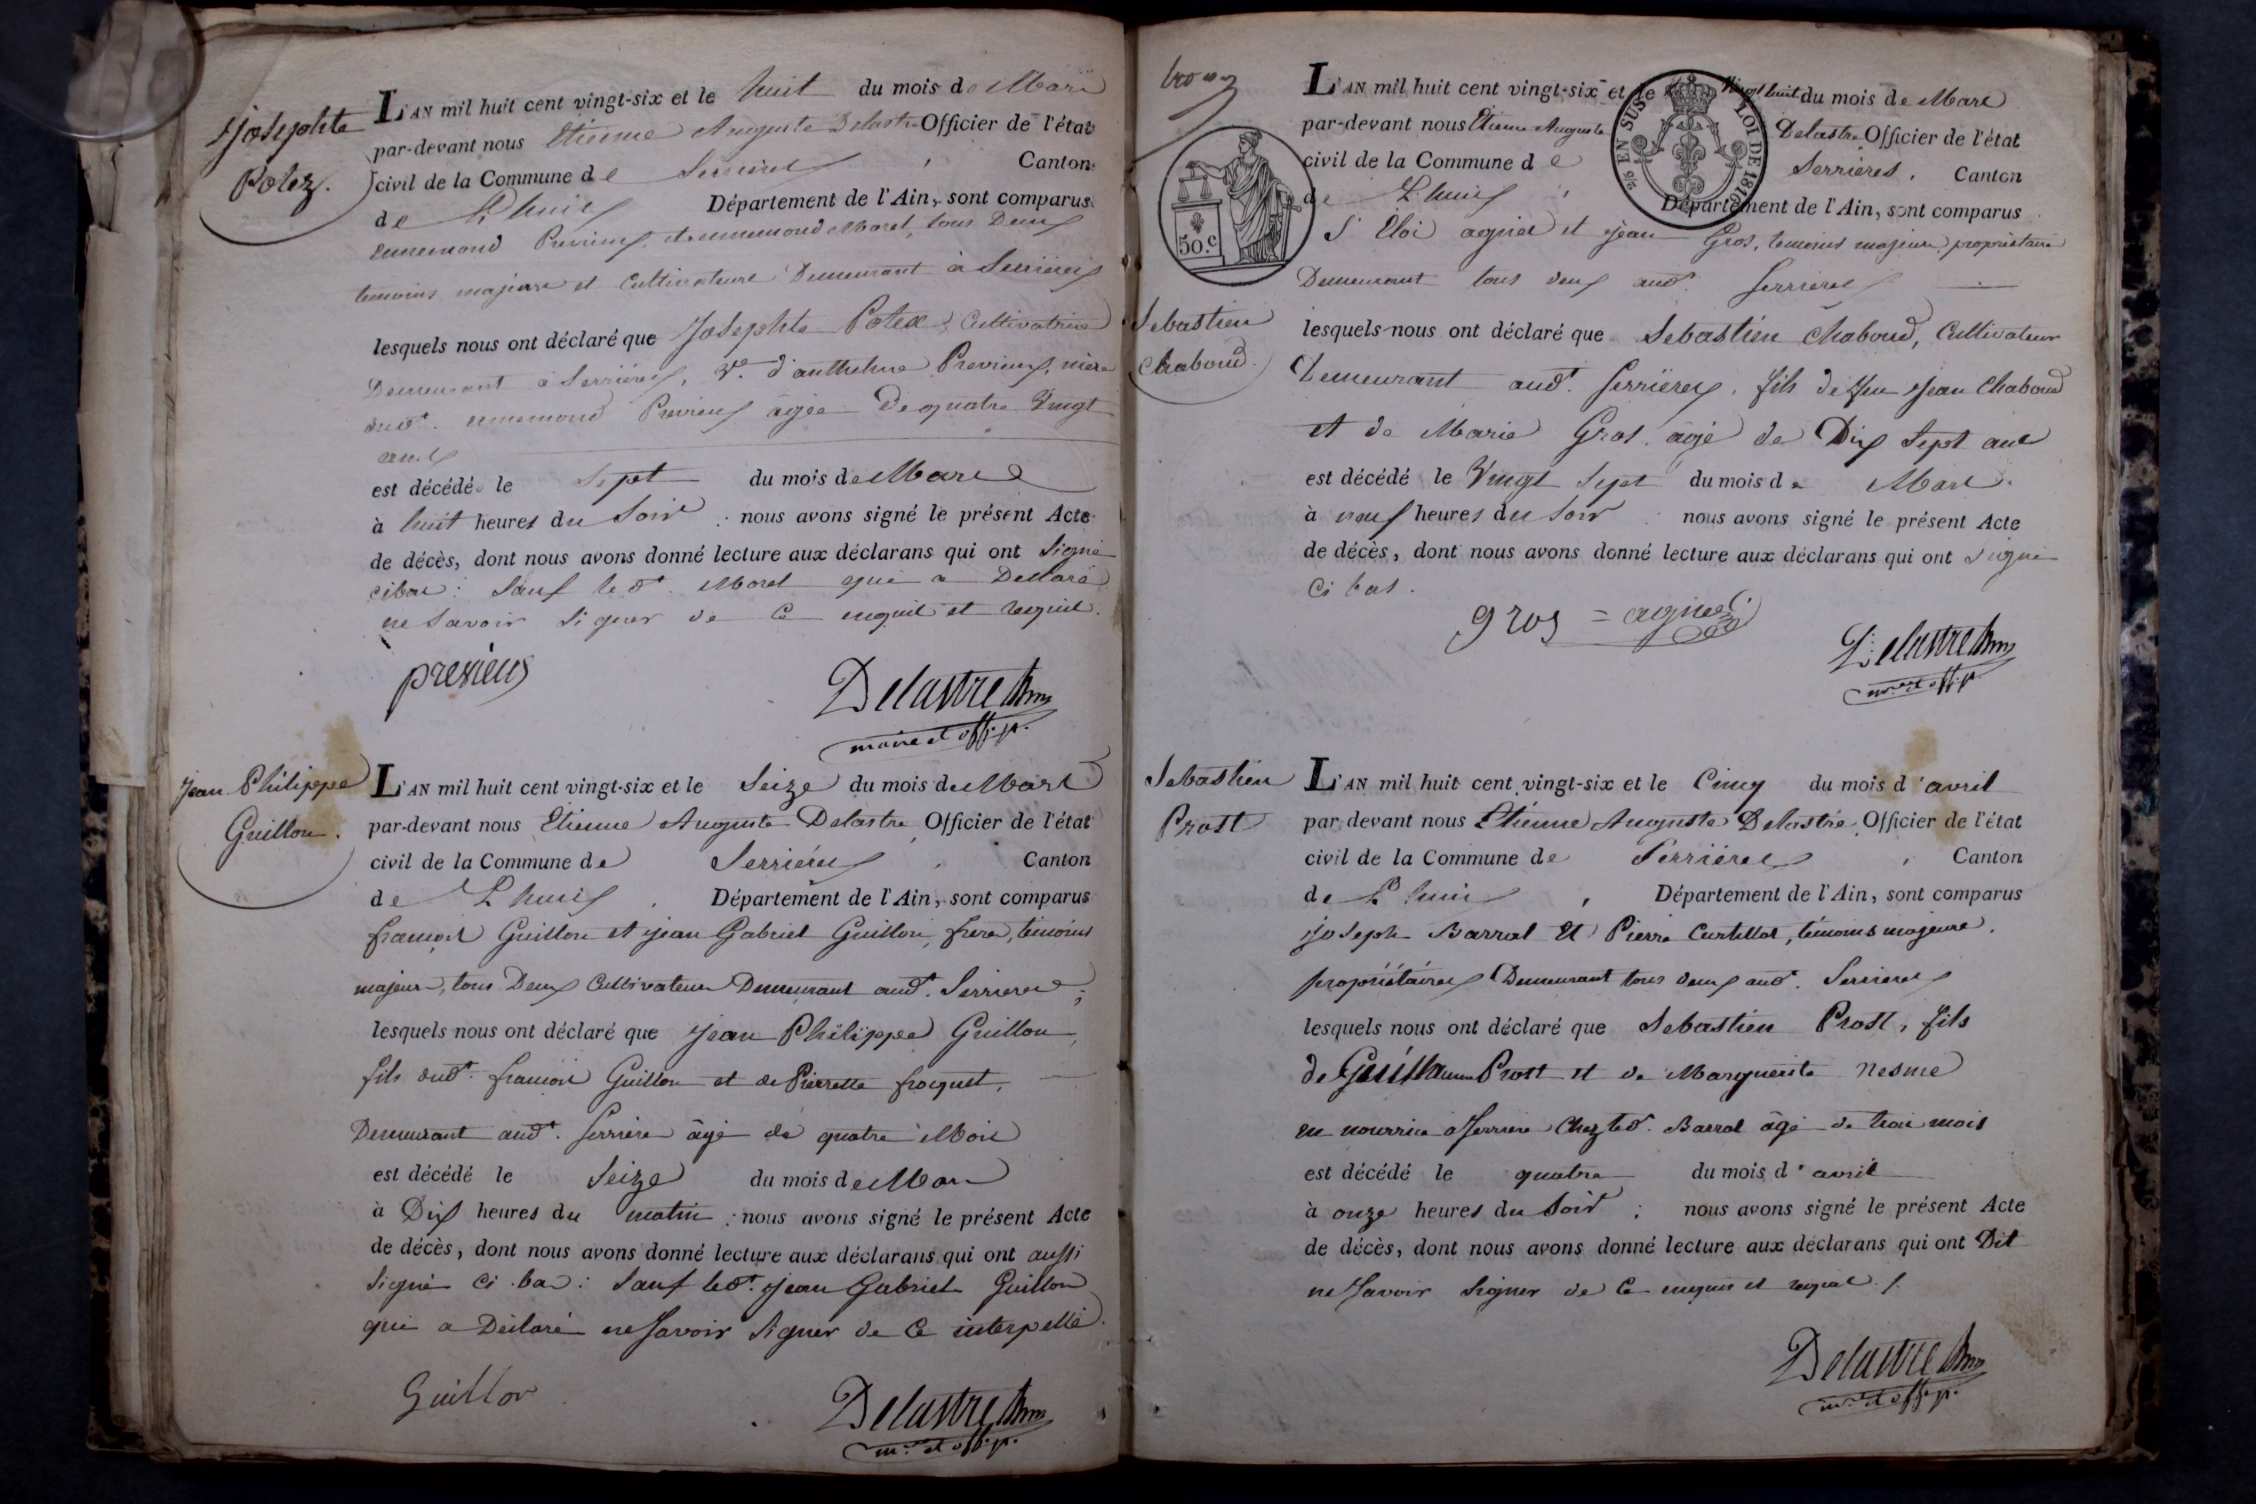 Josephte
Polez.
L'AN mil huit cent vingt-six et le huit du mois de Mars
par-devant nous Etienne Auguste Delastre Officier de l'état
civil de la Commune de Serrieres, Canton
de Lhuis Département de l'Ain, sont comparus
ennemond Previeux, et ennemond Moret, tous Deux
temoins majeurs et Cultivateurs Demeurant à Serrières
lesquels nous ont déclaré que Josephte Polex, Cultivatrice
Demeurant à Serrières, Ve. d'anthelme Previeux, mère
dudt. ennemond Previeux âgée De quatre Vingt
ans
est décédé le Sept du mois de Mars
à huit heures du Soir : nous avons signé le présent Acte
de décès, dont nous avons donné lecture aux déclarans qui ont Signé
cibas : Sauf le dt. Moret qui a Déclaré
ne Savoir Signer de Ce enquit et requit.
previeux
Delastre
maire et off. p.
Jean Philippe
Guillon.
L'AN mil huit cent vingt-six et le Seize du mois de Mars
par-devant nous Etienne Auguste Delastre Officier de l'état
civil de la Commune de Serriéres, Canton
de Lhuis, Département de l'Ain, sont comparus
françois Guillon et Jean Gabriel Guillon, frere, témoins
majeurs, tous Deux Cultivateurs Demeurant audt. Serrieres;
lesquels nous ont déclaré que Jean Philippe Guillon,
fils dudt. françois Guillon et de Pierrette froquet,
Demeurant audt. Serriere âgé de quatre Mois
est décédé le Seize du mois de Mars
à Dix heures du matin ; nous avons signé le présent Acte
de décès, dont nous avons donné lecture aux déclarans qui ont aussi
Signé Ci bas : Sauf ledt. Jean Gabriel Guillon
qui a Déclaré ne Savoir Signer de Ce interpellé.
Guillon
Delastre
m. et off. p.
EN SUS
LOI DE 1816
50.c
L'AN mil huit cent vingt-six et le Vingt huit du mois de Mars
par-devant nous Etienne Auguste Delastre Officier de l'état
civil de la Commune de Serrières, Canton
de Lhuis, Département de l'Ain, sont comparus
S. Eloi agniel et Jean Gros, temoins majeurs, propriétaires
Demeurant tous deux audt. Serrieres
Sebastien
Chaboud.
lesquels nous ont déclaré que Sebastien Chaboud, Cultivateur
Demeurant audt. Serrières, fils de feu Jean Chaboud
et de Marie Gros, âgé de Dix Sept ans
est décédé le Vingt Sept du mois de Mars
à neuf heures du Soir : nous avons signé le présent Acte
de décès, dont nous avons donné lecture aux déclarans qui ont Signé
Ci bas.
gros = agniel
Delastre
m. et off. p.
Sebastien
Prost
L'AN mil huit cent vingt-six et le Cinq du mois d'avril
par devant nous Etienne Auguste Delastre Officier de l'état
civil de la Commune de Serriéres, Canton
de Lhuis, Département de l'Ain, sont comparus
Joseph Barral Et Pierre Curtillat, témoins majeurs,
propriétaires Demeurant tous deux audt. Serrieres
lesquels nous ont déclaré que Sebastien Prost, fils
de Guillaume Prost et de Marguerite Nesme
en nourrice à Serriere Chez led. Barral âgé de trois mois
est décédé le quatre du mois d'avril
à onze heures du Soir ; nous avons signé le présent Acte
de décès, dont nous avons donné lecture aux déclarans qui ont Dit
ne Savoir Signer de Ce enquis et requis ./.
Delastre
m. et off. p.